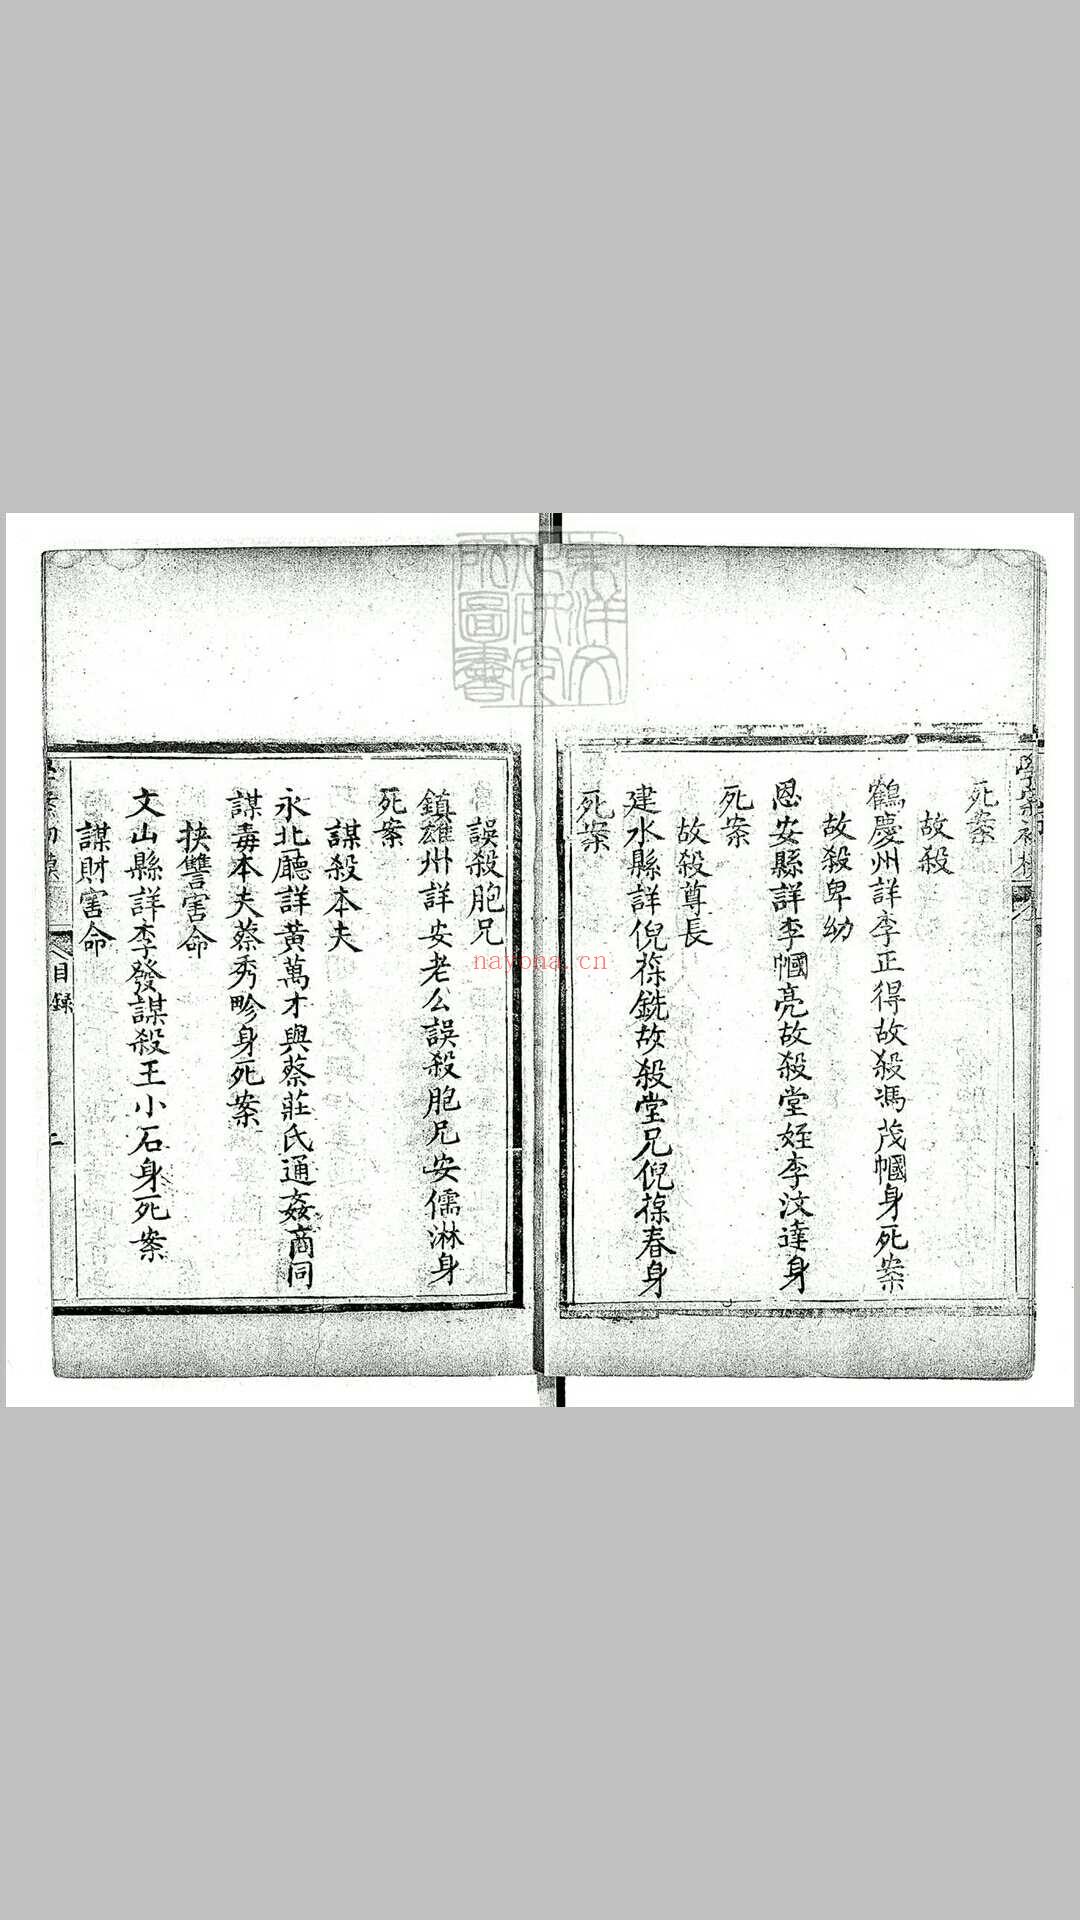 死案
故殺
鶴慶州詳李正得故殺馮茂幗身死案
故殺卑幼
恩安縣詳李幗亮故殺堂姪李汶達身
死案
故殺尊長
建水縣詳倪葆銑故殺堂兄倪葆春身
死案
誤殺胞兄
鎮雄州詳安老公誤殺胞兄安儒淋身
死案
謀殺本夫
永北廳詳黃萬才與蔡莊氏通姦商同
謀毒本夫蔡秀畛身死案
挾讐害命
文山縣詳李發謀殺王小石身死案
謀財害命
目録
二
nayona.cn